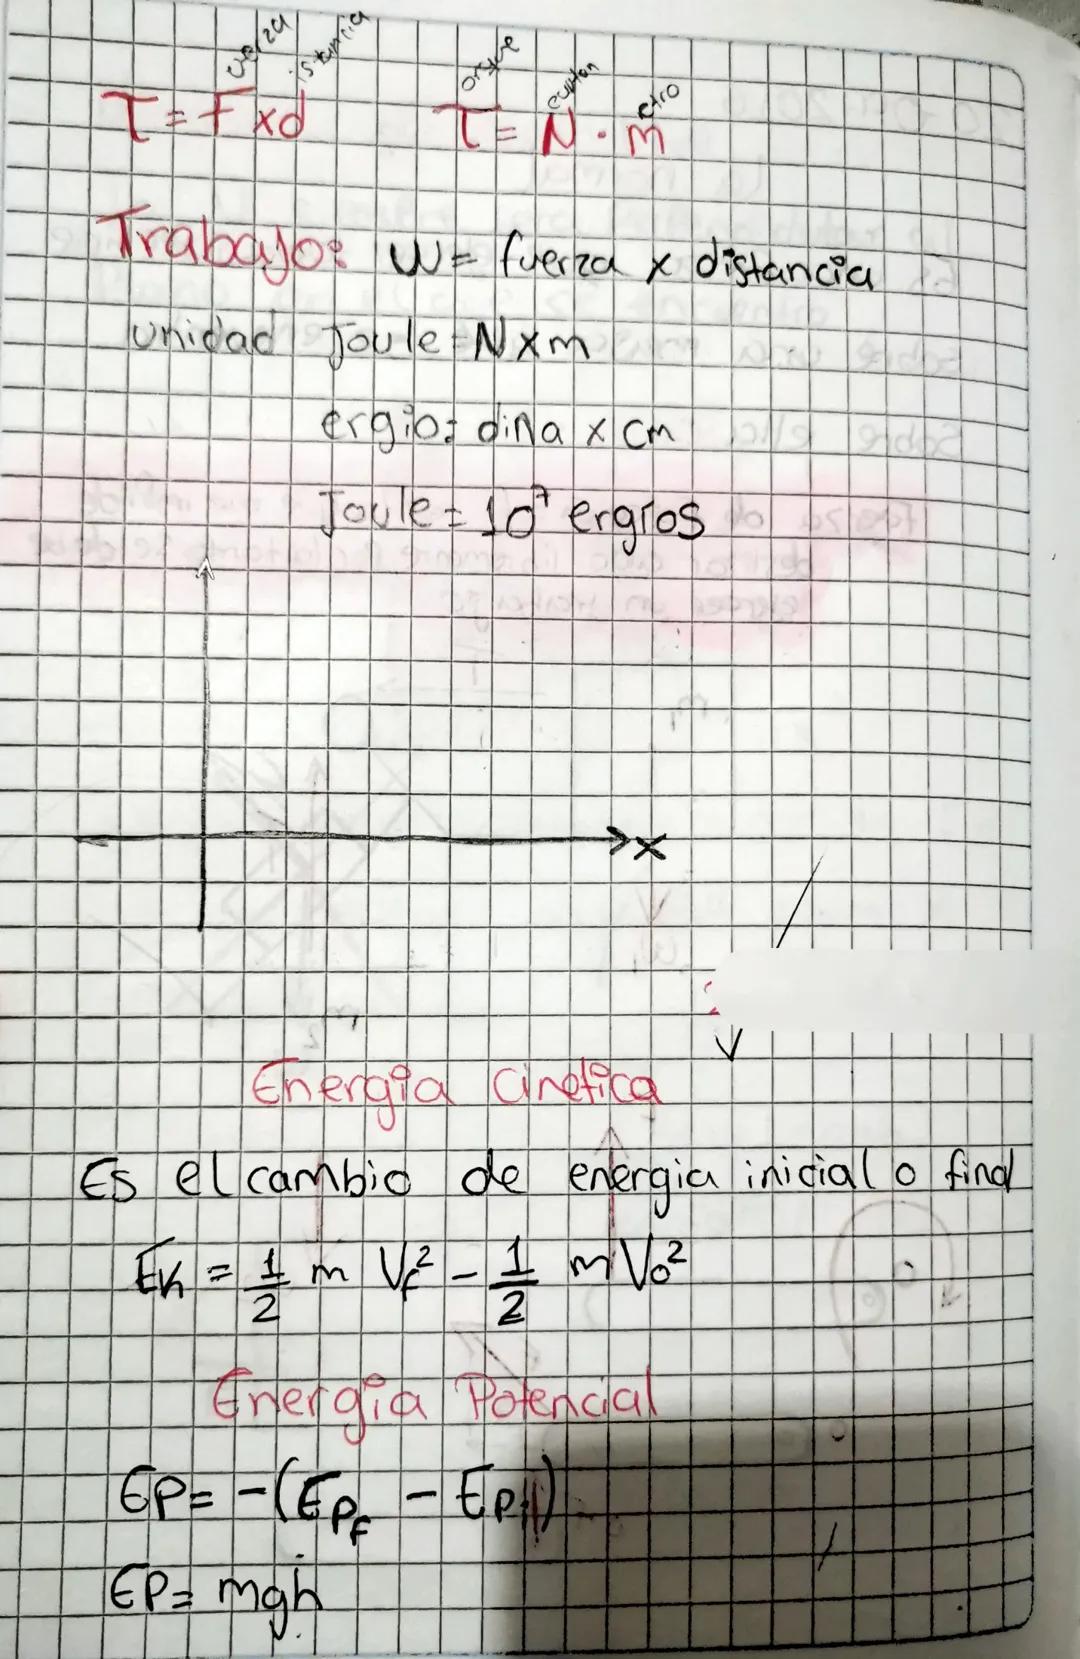 fuerza distancia torque newton metro
τ = F x d τ = N · m
Trabajo: W = fuerza x distancia
unidad Joule = N x m
ergio: dina x cm
Joule = 10⁷ ergios
x
Energia Cinetica
Es el cambio de energia inicial o final
EK = 1/2 m Vf² - 1/2 m Vo²
Energia Potencial
EP = -(EPf - EPi)
EP = mgh